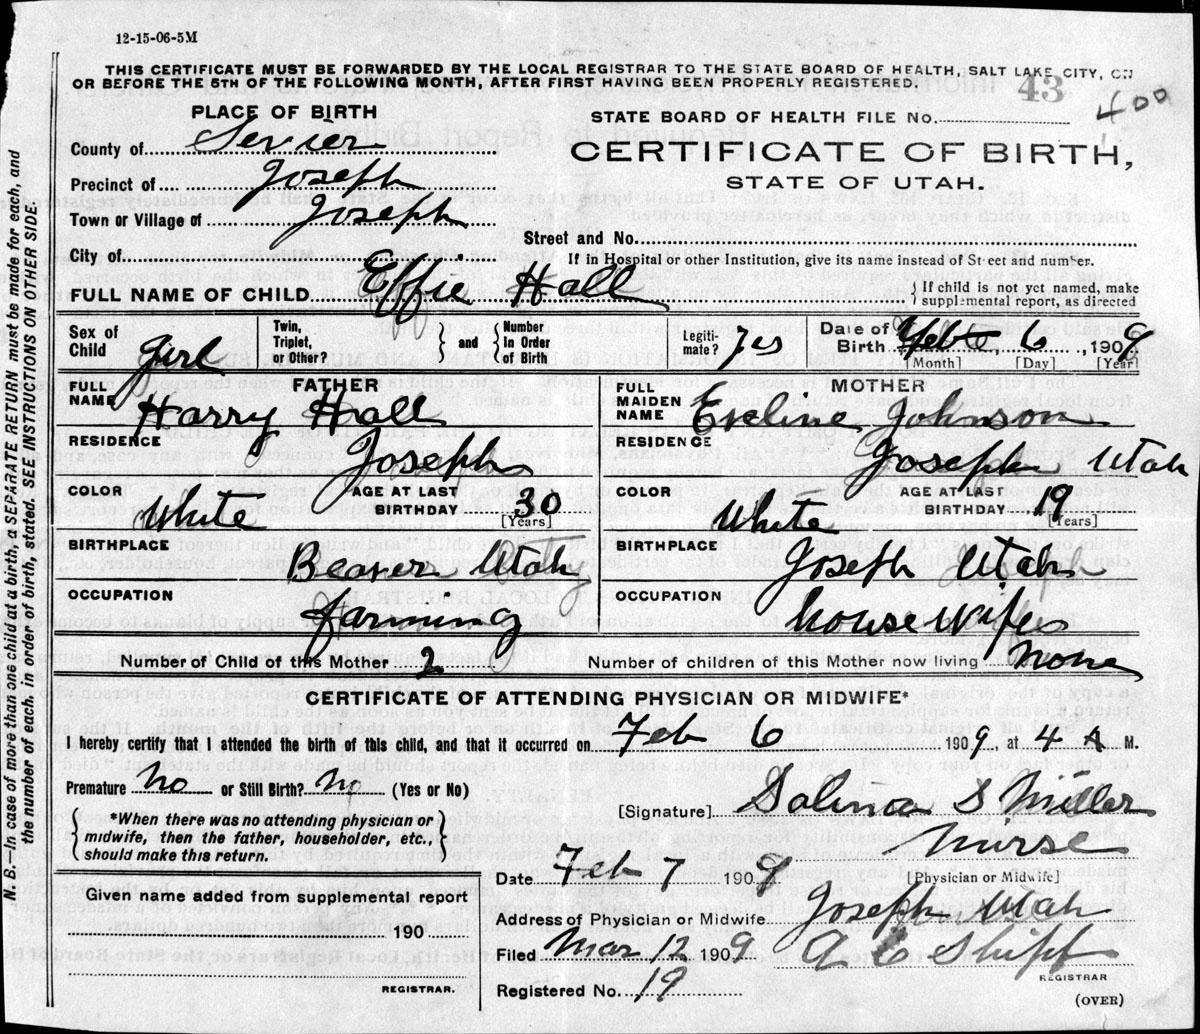 12-15-06-5M
THIS CERTIFICATE MUST BE FORWARDED BY THE LOCAL REGISTRAR TO THE STATE BOARD OF HEALTH, SALT LAKE CITY, ON
OR BEFORE THE 5TH OF THE FOLLOWING MONTH, AFTER FIRST HAVING BEEN PROPERLY REGISTERED.
43
400
PLACE OF BIRTH
STATE BOARD OF HEALTH FILE No.
County of Sevier
CERTIFICATE OF BIRTH,
STATE OF UTAH.
Precinct of Joseph
Town or Village of Joseph
Street and No.
City of
If in Hospital or other Institution, give its name instead of Street and number.
FULL NAME OF CHILD Effie Hall
If child is not yet named, make
supplemental report, as directed
Sex of Child Girl
Twin, Triplet, or Other?
and
Number In Order of Birth
Legiti-mate? yes
Date of Birth 6, 1909
[Month] [Day] [Year]
FATHER
FULL NAME Harry Hall
RESIDENCE Joseph
COLOR White
AGE AT LAST BIRTHDAY 30 [Years]
BIRTHPLACE Beaver Utah
OCCUPATION farming
MOTHER
FULL MAIDEN NAME Eveline Johnson
RESIDENCE Joseph Utah
COLOR White
AGE AT LAST BIRTHDAY 19 [Years]
BIRTHPLACE Joseph Utah
OCCUPATION
Number of Child of this Mother 2
Number of children of this Mother now living none
CERTIFICATE OF ATTENDING PHYSICIAN OR MIDWIFE*
I hereby certify that I attended the birth of this child, and that it occurred on Feb 6 1909, at 4 A M.
Premature No or Still Birth? No (Yes or No)
*When there was no attending physician or
midwife, then the father, householder, etc.,
should make this return.
[Signature] S Miller
Nurse
[Physician or Midwife]
Date Feb 7 1909
Given name added from supplemental report
190
REGISTRAR.
Address of Physician or Midwife Joseph Utah
Filed Mar 12 1909
REGISTRAR
Registered No. 19
(OVER)
N. B.—In case of more than one child at a birth, a SEPARATE RETURN must be made for each, and
the number of each, in order of birth, stated. SEE INSTRUCTIONS ON OTHER SIDE.